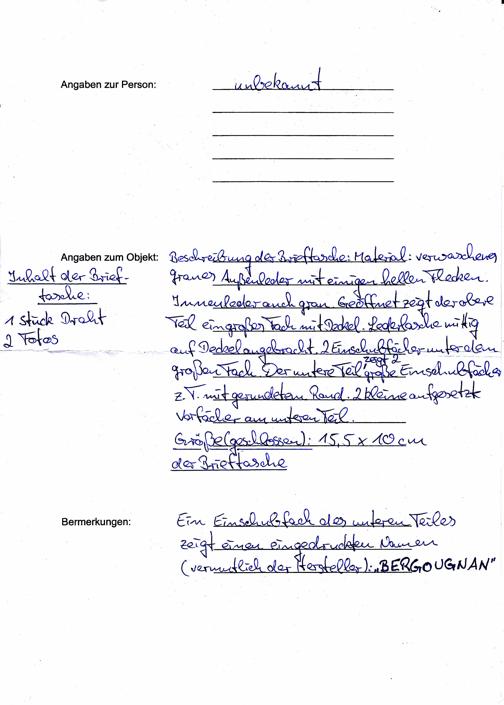 Angaben zur Person: unbekannt
Angaben zum Objekt: Beschreibung der Brieftasche: Material: verwaschenes
graues Außenleder mit einigen hellen Flecken.
Innenleder auch grau. Geöffnet zeigt der obere
Teil ein großes Fach mit Deckel. Lederlasche mittig
auf Deckel angebracht. 2 Einschubfächer unter dem
großen Fach. Der untere Teil zeigt 2 große Einschubfächer
z.T. mit gerundetem Rand. 2 kleine aufgesetzt
Vorfächer am unteren Teil.
Größe (geschlossen): 15,5 x 10 cm
der Brieftasche
Inhalt der Brief-
tasche:
1 Stück Draht
2 Fotos
Bermerkungen: Ein Einschubfach des unteren Teiles
zeigt einen eingedruckten Namen
(vermutlich der Hersteller): „BERGOUGNAN"